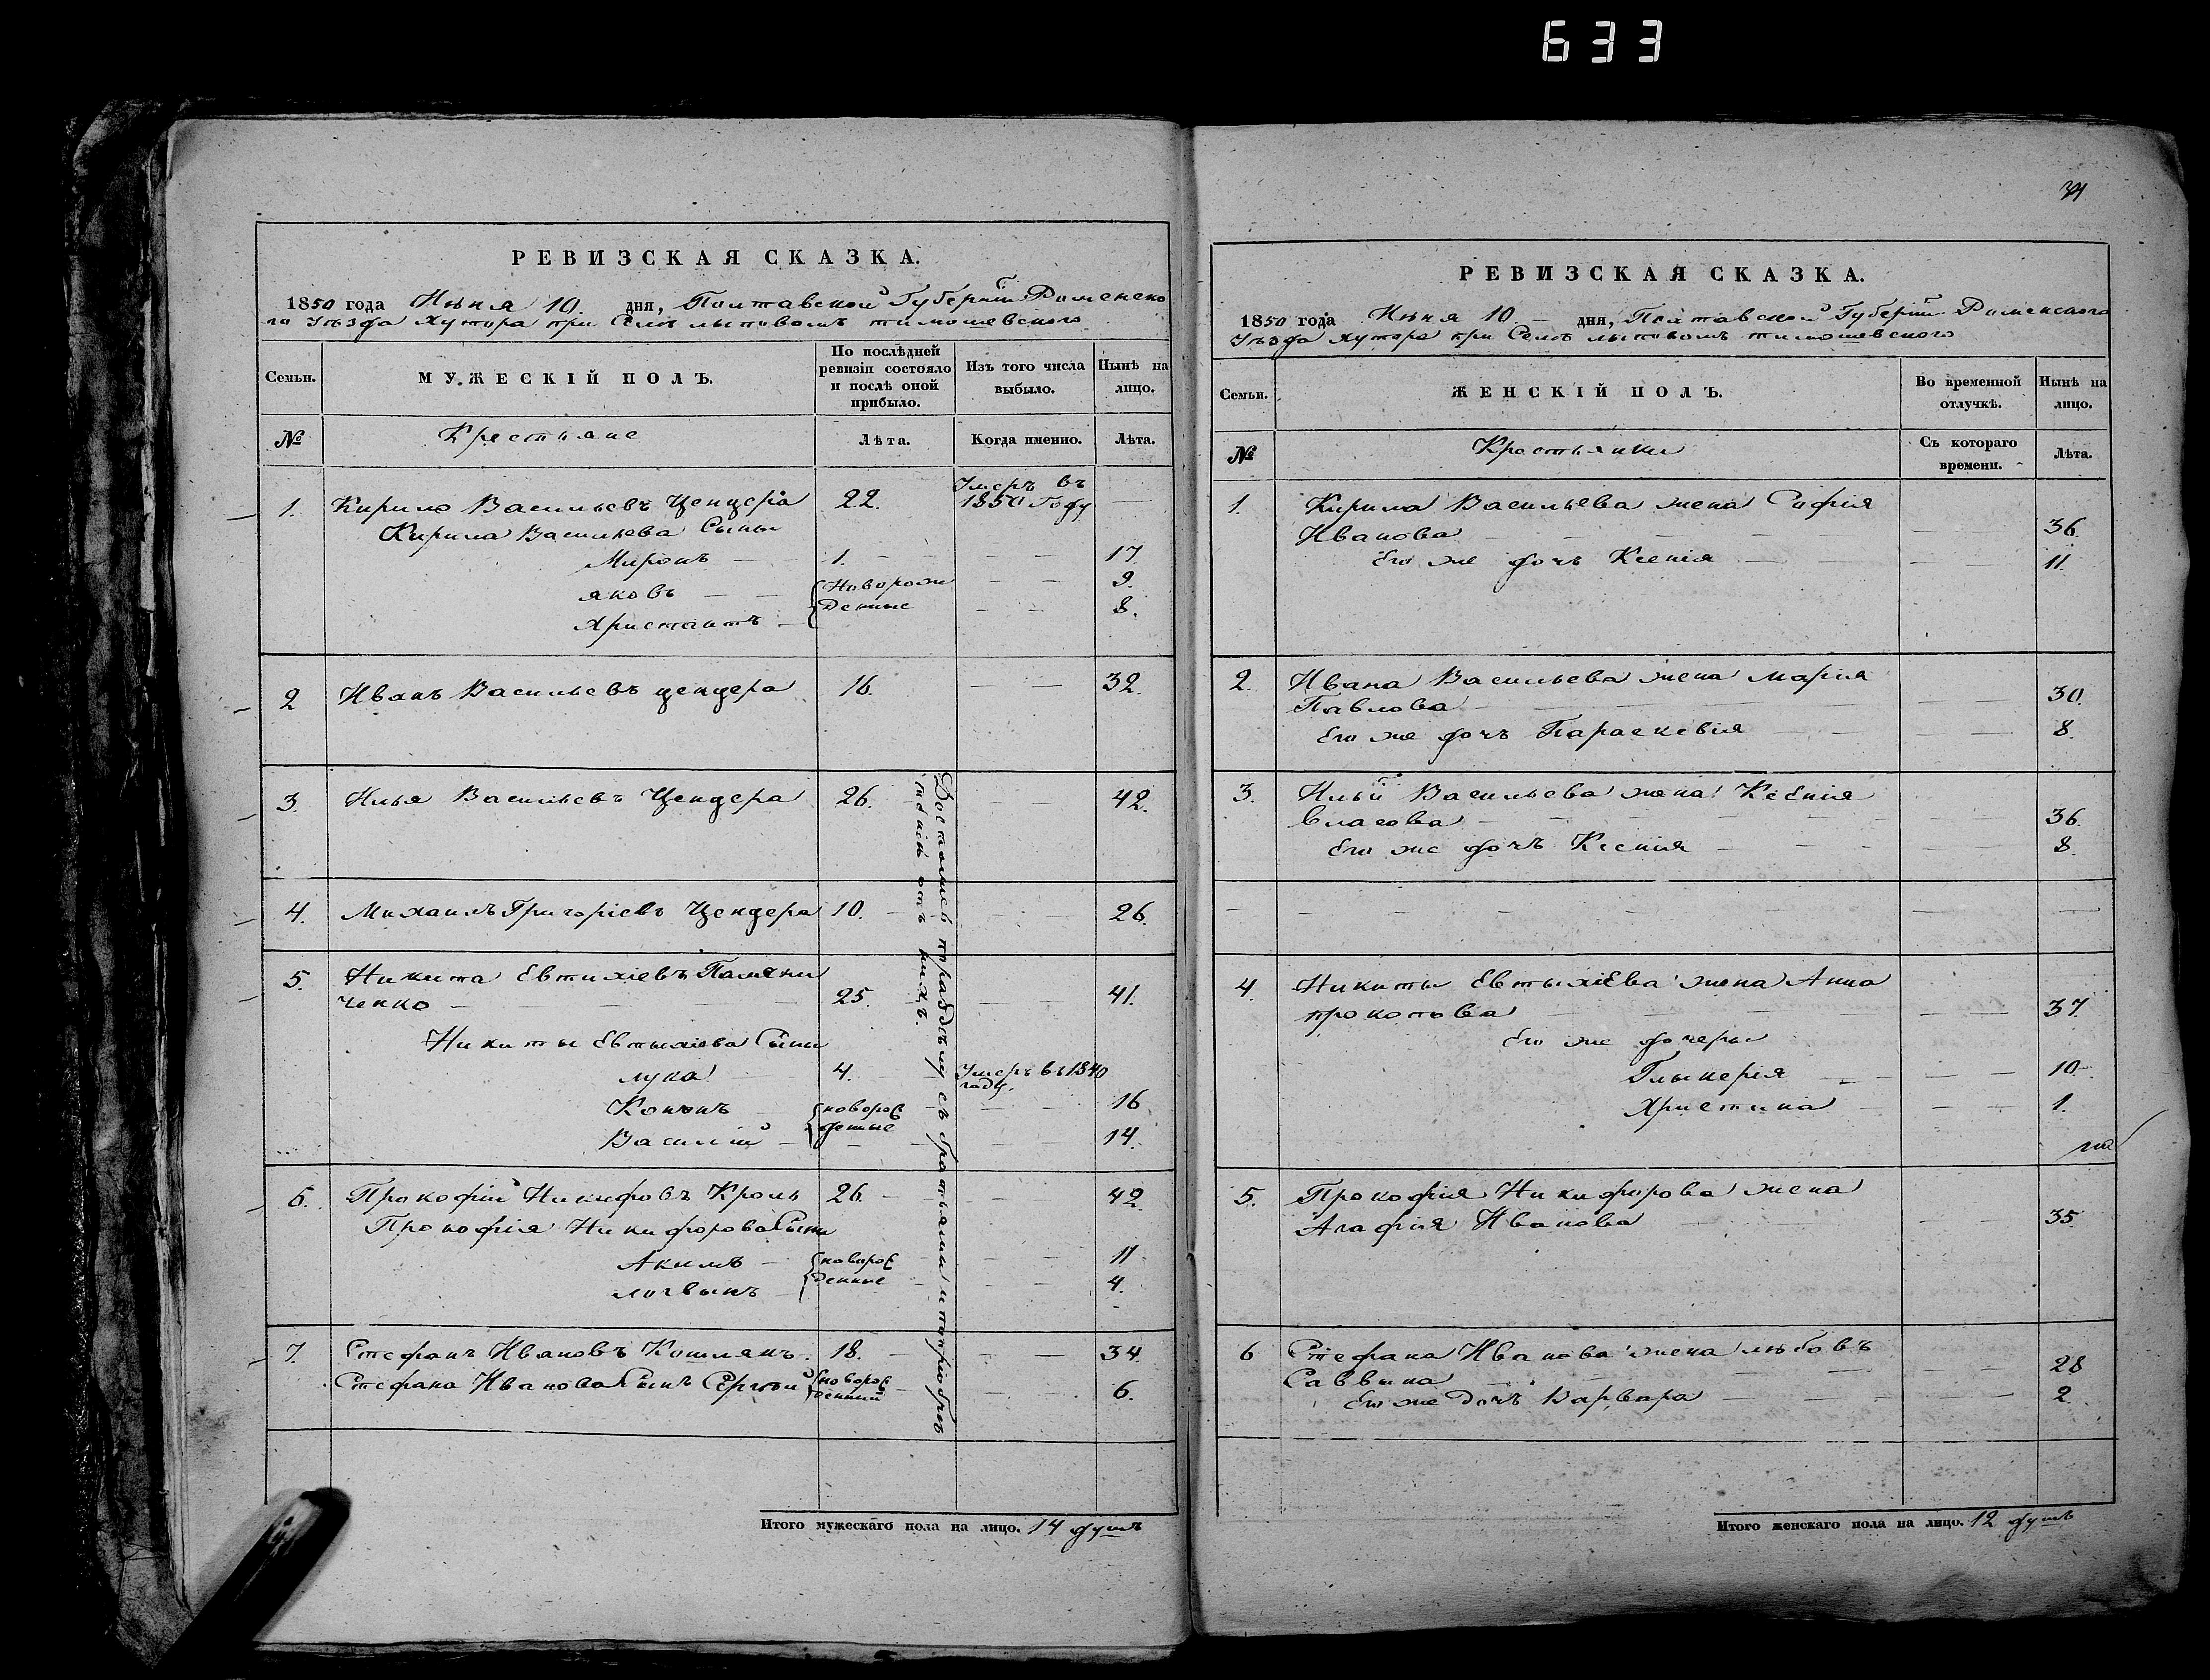 633
РЕВИЗСКАЯ СКАЗКА.
1850 года Июня 10 дня, Полтавской Губерніи Роменско
го Уѣзда Хутора при Селѣ лыповомъ тимошевского
Семьи.
МУЖЕСКІЙ ПОЛЪ.
По послѣдней ревизіи состояло и послѣ оной прибыло.
Изъ того числа выбыло.
Нынѣ на лицо.
№
Крестьяне
Лѣта.
Когда именно.
Лѣта.
1. Кирило Васильевъ Цендера 22. Умеръ въ 1850 Году
Кирила Васильева Сыны
Миронъ 1. 17.
Яковъ {Новорож 9.
Христантъ денные 8.
2 Иванъ Васильевъ цендера 16. 32.
3. Илья Васильевъ Цендера 26. 42.
4. Михаилъ Григоріевъ Цендера 10. 26.
5. Никита Евтихіевъ
ченко 25. 41.
Никиты Евтыхіева Сыны
лука 4. Умеръ въ 1840 году.
Кононъ {новорож 16
Василій денные 14.
6. Прокофій Никифовъ Кроль 26. 42.
Прокофія Никифорова Сыны
Акимъ {новорож 11
логвынъ денные 4.
7. Стефанъ Ивановъ Кошлянъ. 18. 34.
Стефана Иванова Сынъ Сергѣй {новорож денный 6.
Достались по раздѣлу съ братьями и попріобрѣ
тенію отъ нихъ.
Итого мужескаго пола на лицо. 14 душъ
РЕВИЗСКАЯ СКАЗКА.
1850 года Июня 10 дня, Полтавской Губерніи Роменского
Уѣзда хутора при Селѣ лыповомъ тимошевского
Семьи.
ЖЕНСКІЙ ПОЛЪ.
Во временной отлучкѣ.
Нынѣ на лицо.
№
Крестьянки
Съ котораго времени.
Лѣта.
1. Кирила Васильева жена Софія
Иванова 36.
Его же дочь Ксенія 11.
2. Ивана Васильева жена Марія
Павлова 30.
Его же дочъ Параскевія 8.
3. Ильи Васильева жена Ксенія
Власова 36.
Его же дочъ Ксенія 8.
4. Никиты Евтыхіева жена Анна
прокопова 37.
Его же дочеры
Глыкерія 10.
Христина 1.
5. Прокофія Никифорова жена
Агафія Иванова 35.
6 Стефана Иванова жена любовъ
Саввына 28
Его же дочъ Варвара 2.
Итого женскаго пола на лицо. 12 душъ